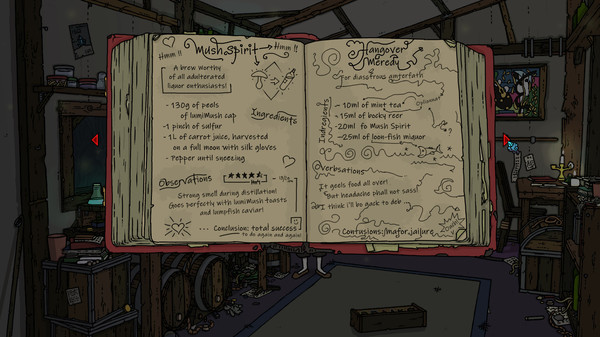 Hmm !!
MushSpirit → Hmm !!
A brew worthy
of all adulterated
liquor enthusiasts!
Ingredients
- 130g of peels
of lumiMush cap
- 1 pinch of sulfur
- 1L of carrot juice, harvested
on a full moon with silk gloves
- Pepper until sneezing
Observations
Strong smell during distillation!
Goes perfectly with lumiMush toasts
and lumpfish caviar!
... Conclusion: total success
to do again and again!
Hangover
Meredy
For disastrous amterfath
Indregients
- 10ml of mint tea
-15ml of bocky reer
-20ml fo Mush Spirit
-25ml of loon-fish miquor
Overbsations
It geels food all over!
But headache phall not sass!
I think i'll be gack to deb...
Confusions:/mafor.jailure